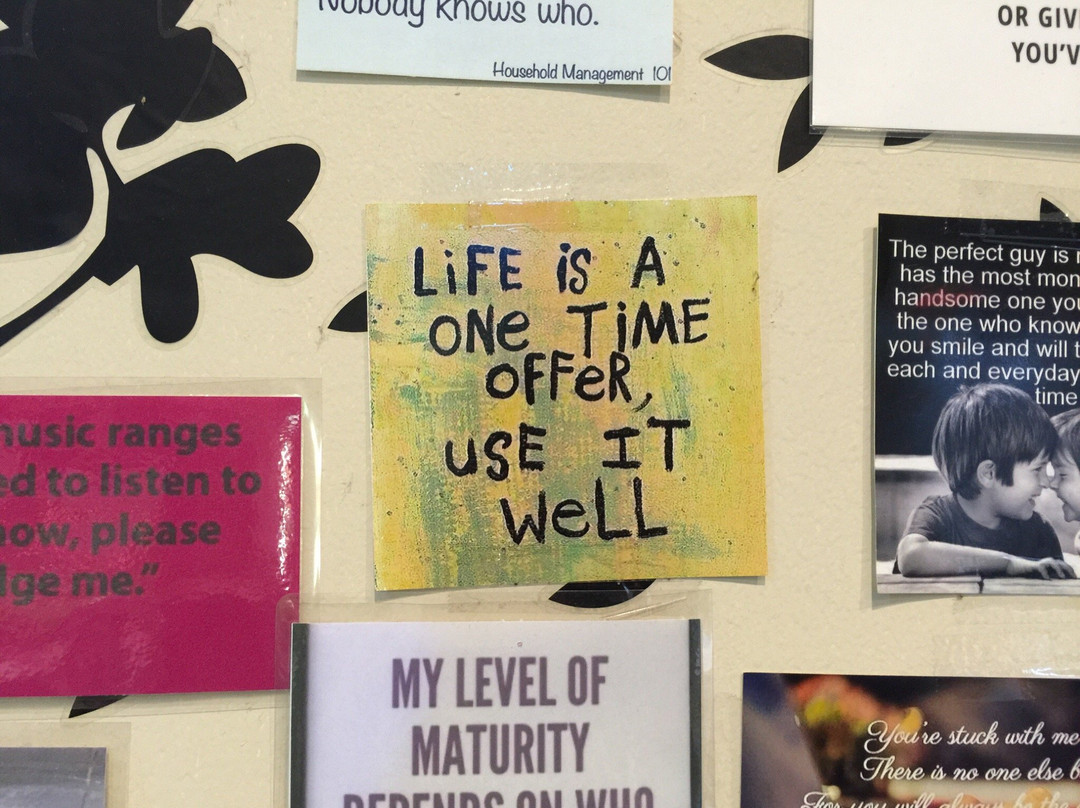 Nobody knows who.
Household Management 101
OR
YOU'V
LiFE iS A
ONe TiME
OFFeR,
USE IT
WeLL
The perfect guy is
has the most
handsome one
the one who
you smile and will
each and everyday
time
music ranges
to listen to
please
me."
MY LEVEL OF
MATURITY
DEPENDS ON WHO
You're stuck with me
There is no one else
For you will always be